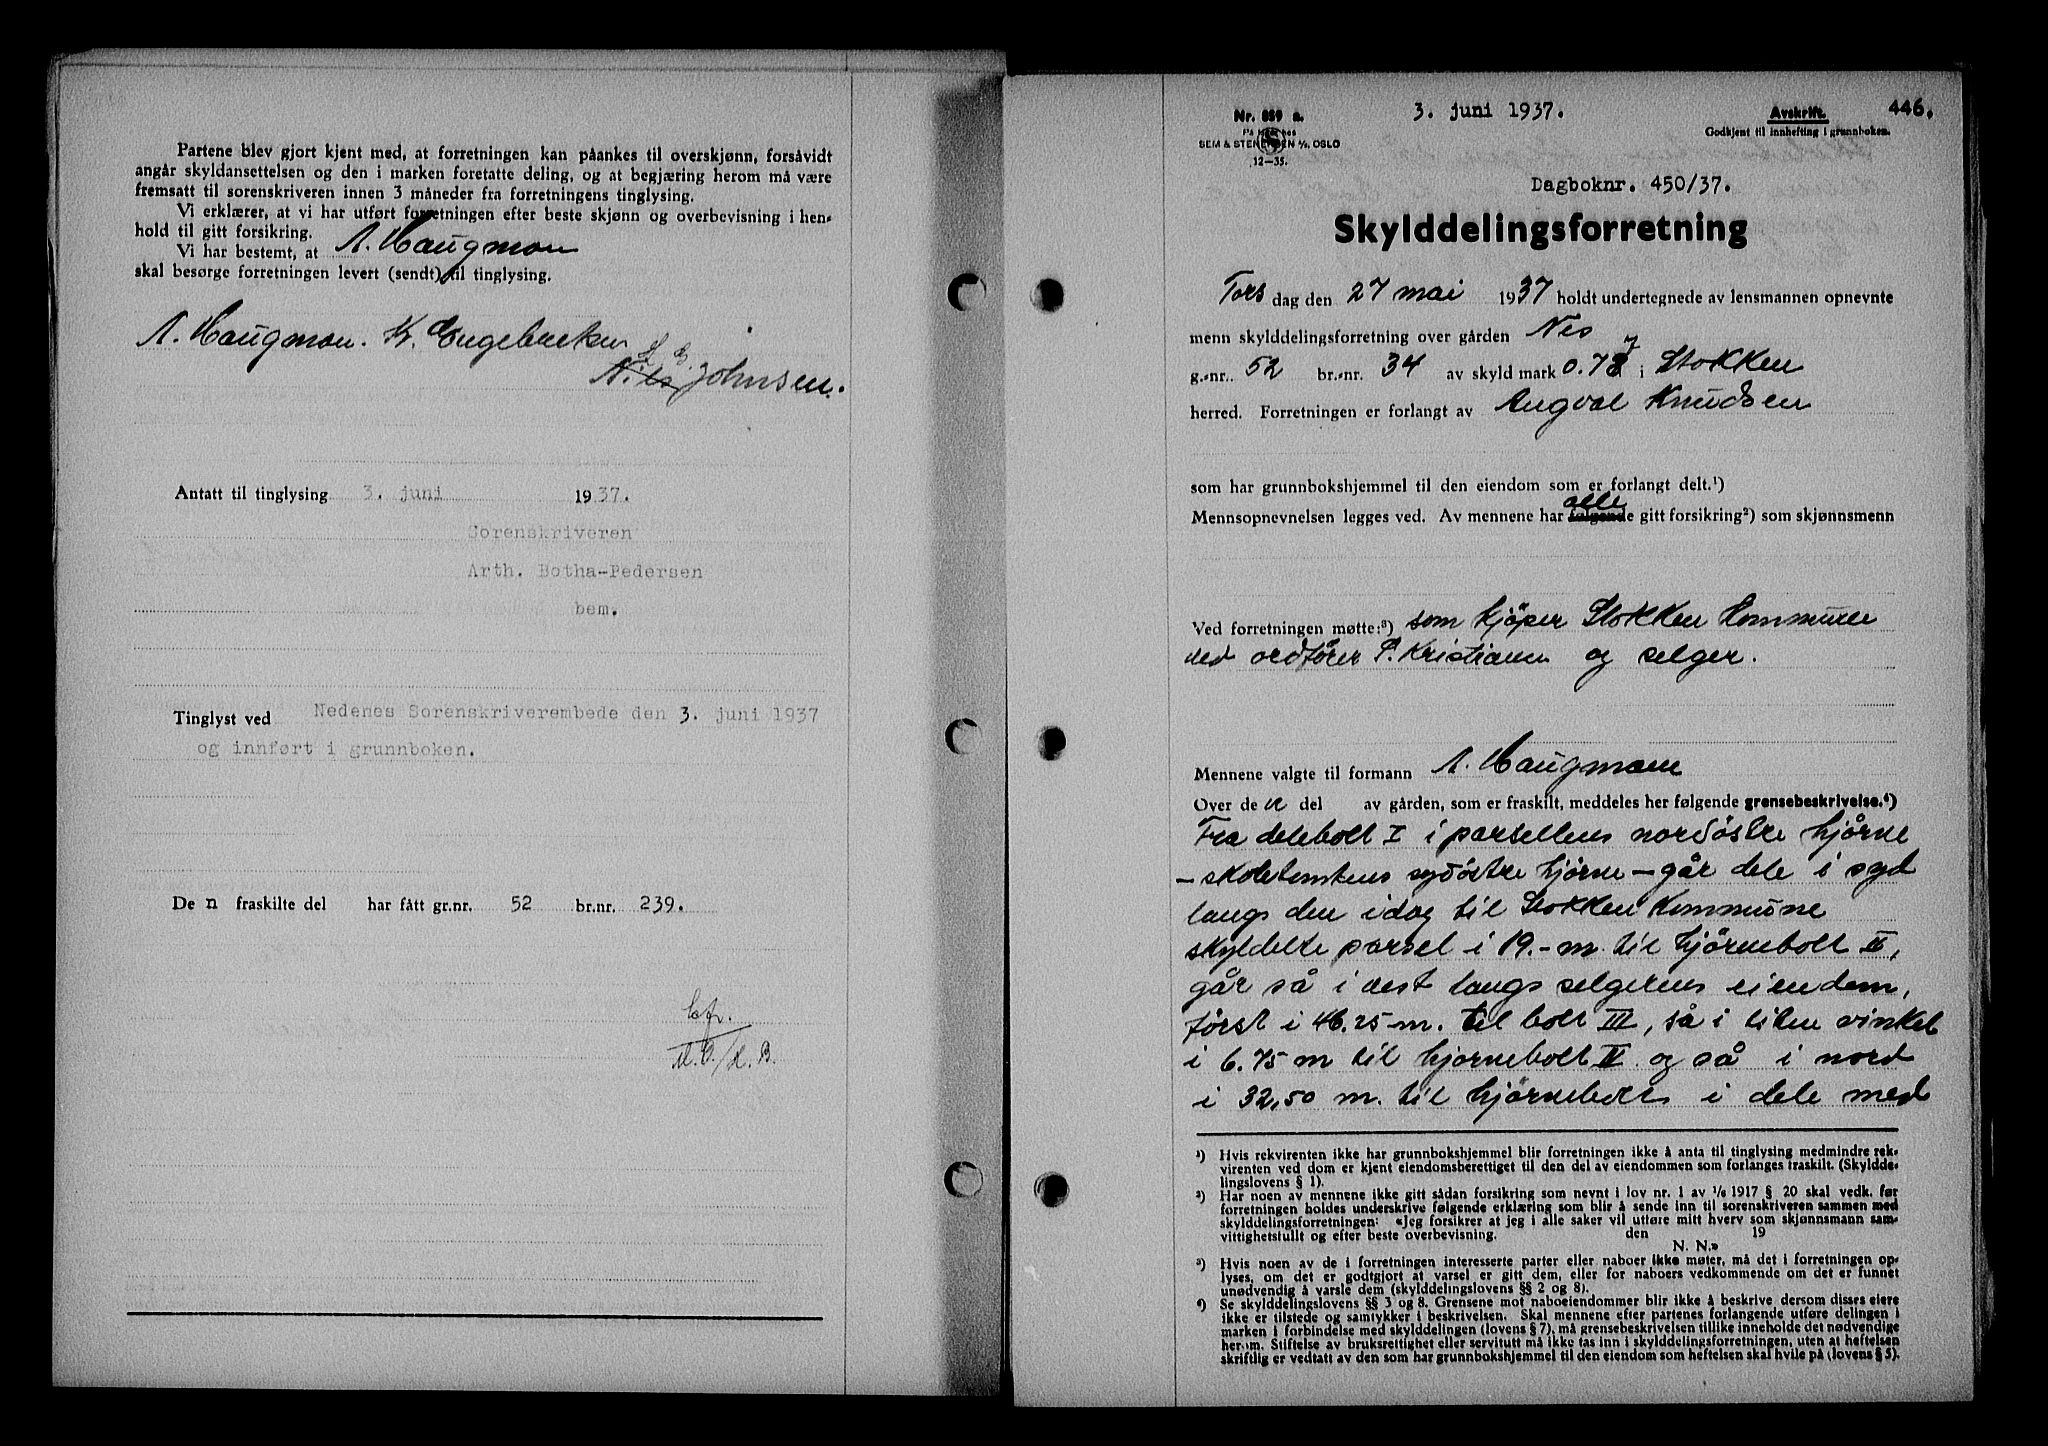 Partene blev gjort kjent med, at forretningen kan påankes til overskjønn, forsåvidt
angår skyldansettelsen og den i marken foretatte deling, og at begjæring herom må være
fremsatt til sorenskriveren innen 3 måneder fra forretningens tinglysing.
Vi erklærer, at vi har utført forretningen efter beste skjønn og overbevisning i hen-
hold til gitt forsikring.
Vi har bestemt, at A. Haugman
skal besørge forretningen levert (sendt) til tinglysing.
A. Haugman. K. Engebretsen
Nils Johnsen.
Antatt til tinglysing 3. juni 1937.
Sorenskriveren
Arth. Botha-Pedersen
bem.
Tinglyst ved Nedenes Sorenskriverembede den 3. juni 1937
og innført i grunnboken.
De n fraskilte del har fått gr.nr. 52 br.nr. 239.
Nr. 859 a.
SEM & STENERSEN A/S, OSLO
12-35.
3. juni 1937.
Avskrift.
Godkjent til innhefting i grunnboken.
446.
Dagboknr. 450/37.
Skylddelingsforretning
Tors dag den 27 mai 1937 holdt undertegnede av lensmannen opnevnte
menn skylddelingsforretning over gården Nes
g.-nr. 52 br.-nr. 34 av skyld mark 0.77 i Stokken
herred. Forretningen er forlangt av Angval Knudsen
som har grunnbokshjemmel til den eiendom som er forlangt delt.¹)
Mennsopnevnelsen legges ved. Av mennene har alle følgende gitt forsikring²) som skjønnsmenn
Ved forretningen møtte:³) som kjöper Stokken Kommune
ved ordfører P. Kristiansen og selger.
Mennene valgte til formann A. Haugman
Over de n del av gården, som er fraskilt, meddeles her følgende grensebeskrivelse.⁴)
Fra delebolt I i parsellens nordöstre hjörne
- skoletomtens sydöstre hjörne - går dele i syd
langs den idag til Stokken Kommune
skyldelte parsel i 19.- m. til hjörnebolt II,
går så i vest langs selgerens eiendom,
först i 46.25 m. til bolt III, så i liten vinkel
i 6.75 m til hjörnebolt IV og så i nord
i 32,50 m. til hjörnebolt i dele med
¹) Hvis rekvirenten ikke har grunnbokshjemmel blir forretningen ikke å anta til tinglysing medmindre rek-
virenten ved dom er kjent eiendomsberettiget til den del av eiendommen som forlanges fraskilt. (Skyldde-
lingslovens § 1).
²) Har noen av mennene ikke gitt sådan forsikring som nevnt i lov nr. 1 av 1/6 1917 § 20 skal vedk. før
forretningen holdes underskrive følgende erklæring som blir å sende inn til sorenskriveren sammen med
skylddelingsforretningen: «Jeg forsikrer at jeg i alle saker vil utføre mitt hverv som skjønnsmann sam-
vittighetsfullt og efter beste overbevisning. den 19
N. N.»
³) Hvis noen av de i forretningen interesserte parter eller naboer ikke møter, må det i forretningen op-
lyses, om det er godtgjort at varsel er gitt dem, eller for naboers vedkommende om det er funnet
unødvendig å varsle dem (skylddelingslovens §§ 2 og 8).
⁴) Se skylddelingslovens §§ 3 og 8. Grensene mot naboeiendommer blir ikke å beskrive dersom disses eiere
ikke er tilstede og samtykker i beskrivelsen. Skal mennene efter partenes forlangende utføre delingen i
marken i forbindelse med skylddelingen (lovens § 7), må grensebeskrivelsen tillike inneholde det nødvendige
herom. Stiftelse av bruksrettighet eller servitutt må ikke tas inn i skylddelingsforretningen, uten at heftelsen
skriftlig er vedtatt av den som har grunnbokshjemmel til den eiendom som heftelsen skal hvile på (lovens § 5).